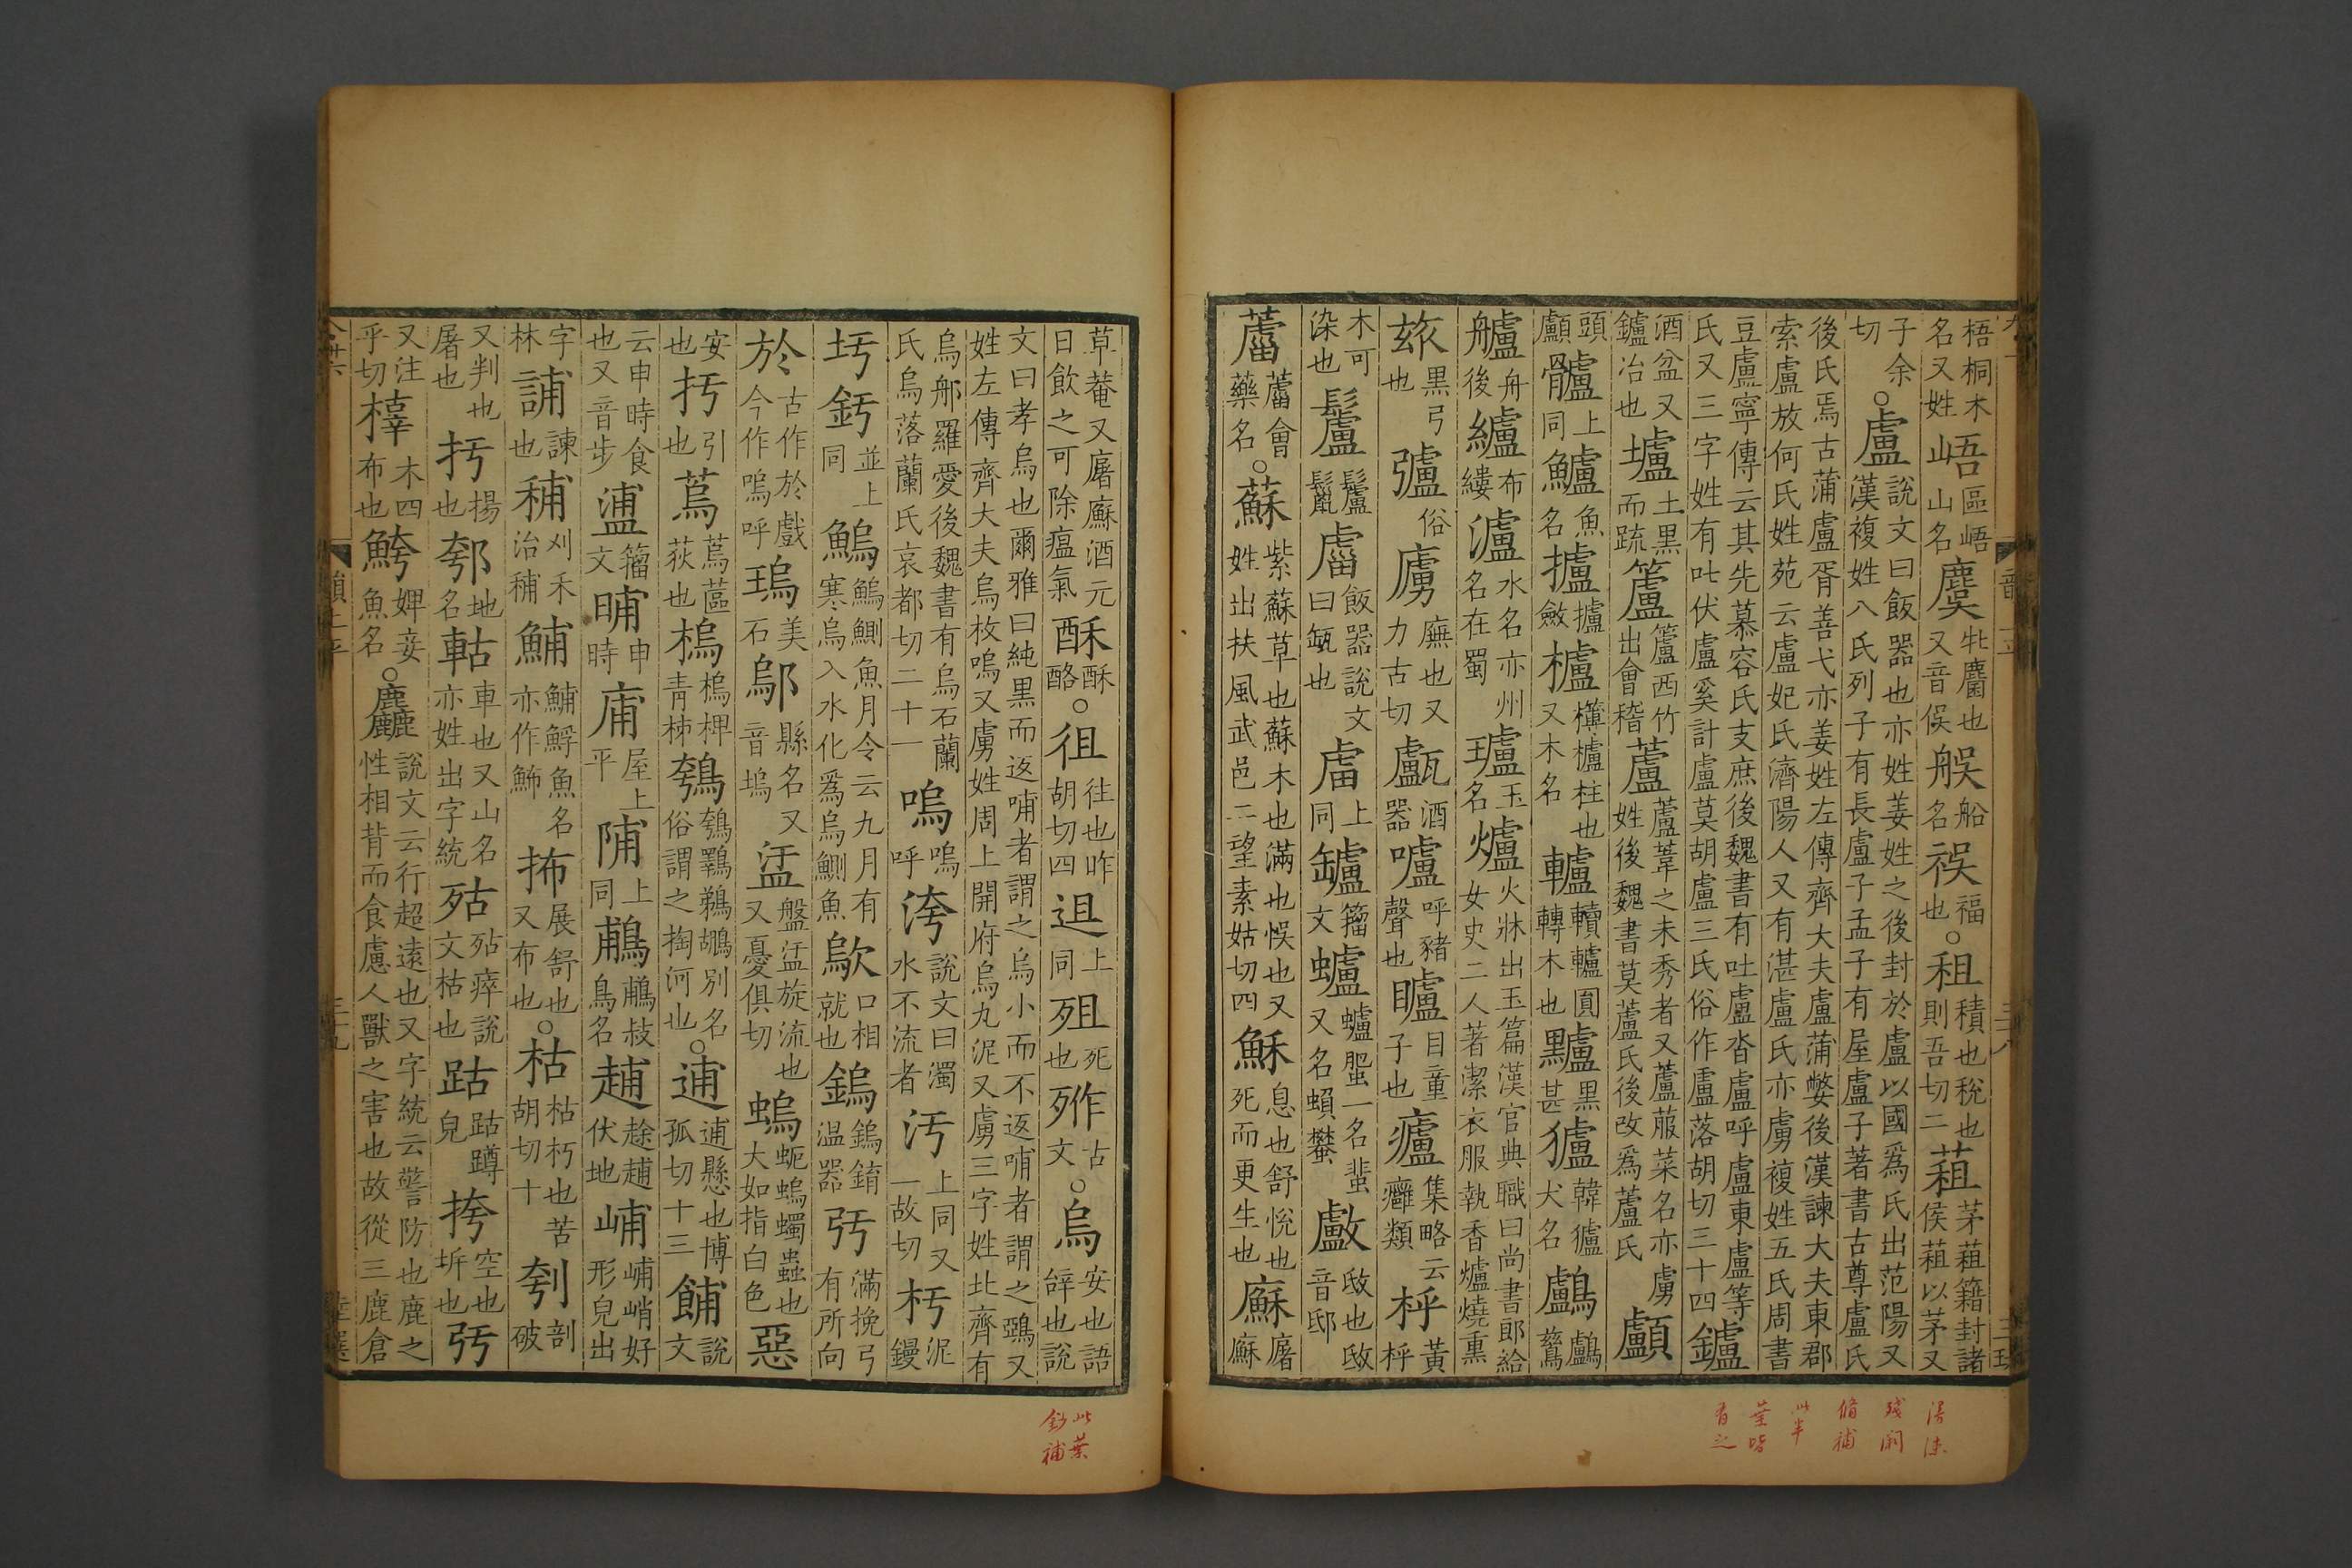 梧桐木名又姓𡸗區峿山名麌牝麢也又音俁䑨船名祦福也○租積也稅也則吾切二蒩茅蒩籍封諸侯蒩以茅又
子余切○盧說文曰飯器也亦姓姜姓之後封於盧以國爲氏出范陽又漢複姓八氏列子有長盧子孟子有屋盧子著書古尊盧氏
後氏焉古蒲盧胥善弋亦姜姓左傳齊大夫盧蒲嫳後漢諫大夫東郡索盧放何氏姓苑云盧妃氏濟陽人又有湛盧氏亦虜複姓五氏周書
豆盧寧傳云其先慕容氏支庶後魏書有吐盧沓盧呼盧東盧等氏又三字姓有吐伏盧奚計盧莫胡盧三氏俗作盧落胡切三十四鑪
酒盆又鑪冶也壚土黑而疏籚籚西竹出會稽蘆蘆葦之未秀者又蘆菔菜名亦虜姓後魏書莫蘆氏後改爲蘆氏顱
頭顱髗上同鱸魚名攎攎斂櫨欂櫨柱也又木名轤轒轤圓轉木也黸黑甚獹韓獹犬名鸕鸕鶿
艫舟後纑布縷瀘水名亦州名在蜀瓐玉名爐火牀出玉篇漢官典職曰尚書郎給女史二人著潔衣服執香爐燒熏
玈黑弓也㢚俗廔廡也又力古切𤮧酒器嚧呼豬聲也矑目童子也癧集略云癰類枰黃枰
木可染也鬛鬛鬣𧆨飯器說文曰缻也𤰈上同罏籀文蠦蠦蜰一名蜚又名蝜蠜㪭㪂也㪂音邸
蘆蘆會藥名○蘇紫蘇草也蘇木也滿也悮也又姓出扶風武邑二望素姑切四穌息也舒悅也死而更生也廯屠廯
草菴又屠廯酒元日飲之可除瘟氣酥酥酪○徂往也昨胡切四迌上同殂死也𣨛古文○烏安也語辝也說
文曰孝烏也爾雅曰純黑而返哺者謂之烏小而不返哺者謂之鵶又姓左傳齊大夫烏枚嗚又虜姓周上開府烏丸泥又虜三字姓北齊有
烏郍羅愛後魏書有烏石蘭氏烏落蘭氏哀都切二十一嗚嗚呼洿說文曰濁水不流者汙上同又一故切杇泥鏝
圬釫並上同鰞鰞鰂魚月令云九月有寒烏入水化爲烏鰂魚歍口相就也鎢鎢錥温器弙滿挽弓有所向
於古作於戲今作嗚呼瑦美石鄔縣名又音塢盓盤盓旋流也又憂俱切螐蚅螐蠋蟲也大如指白色惡
安也扝引也蔦蔦蓲荻也樢樢椑青柹鴮鴮鸅鵜鶘別名俗謂之掏河也○逋逋懸也博孤切十三餔說文
云申時食也又音步𥂈籀文晡申時庯屋上平陠上同鵏鵏䳁鳥名趙䟻趙伏地峬峬峭好形皃出
字林誧諫也秿刈禾治秿鯆鯆䱐魚名亦作䰽抪展舒也又布也○枯枯朽也苦胡切十刳剖破
又判也屠也扝揚也䣄地名軲車也又山名亦姓出字統㱠㱠瘁說文枯也跍跍蹲皃挎空也𡊧也弙
又注乎切樟木四布也鮬婢妾魚名○麤說文云行超遠也又字統云警防也鹿之性相背而食慮人獸之害也故從三鹿倉
漫漶殘闕脩補此半葉皆有之
此葉鈔補